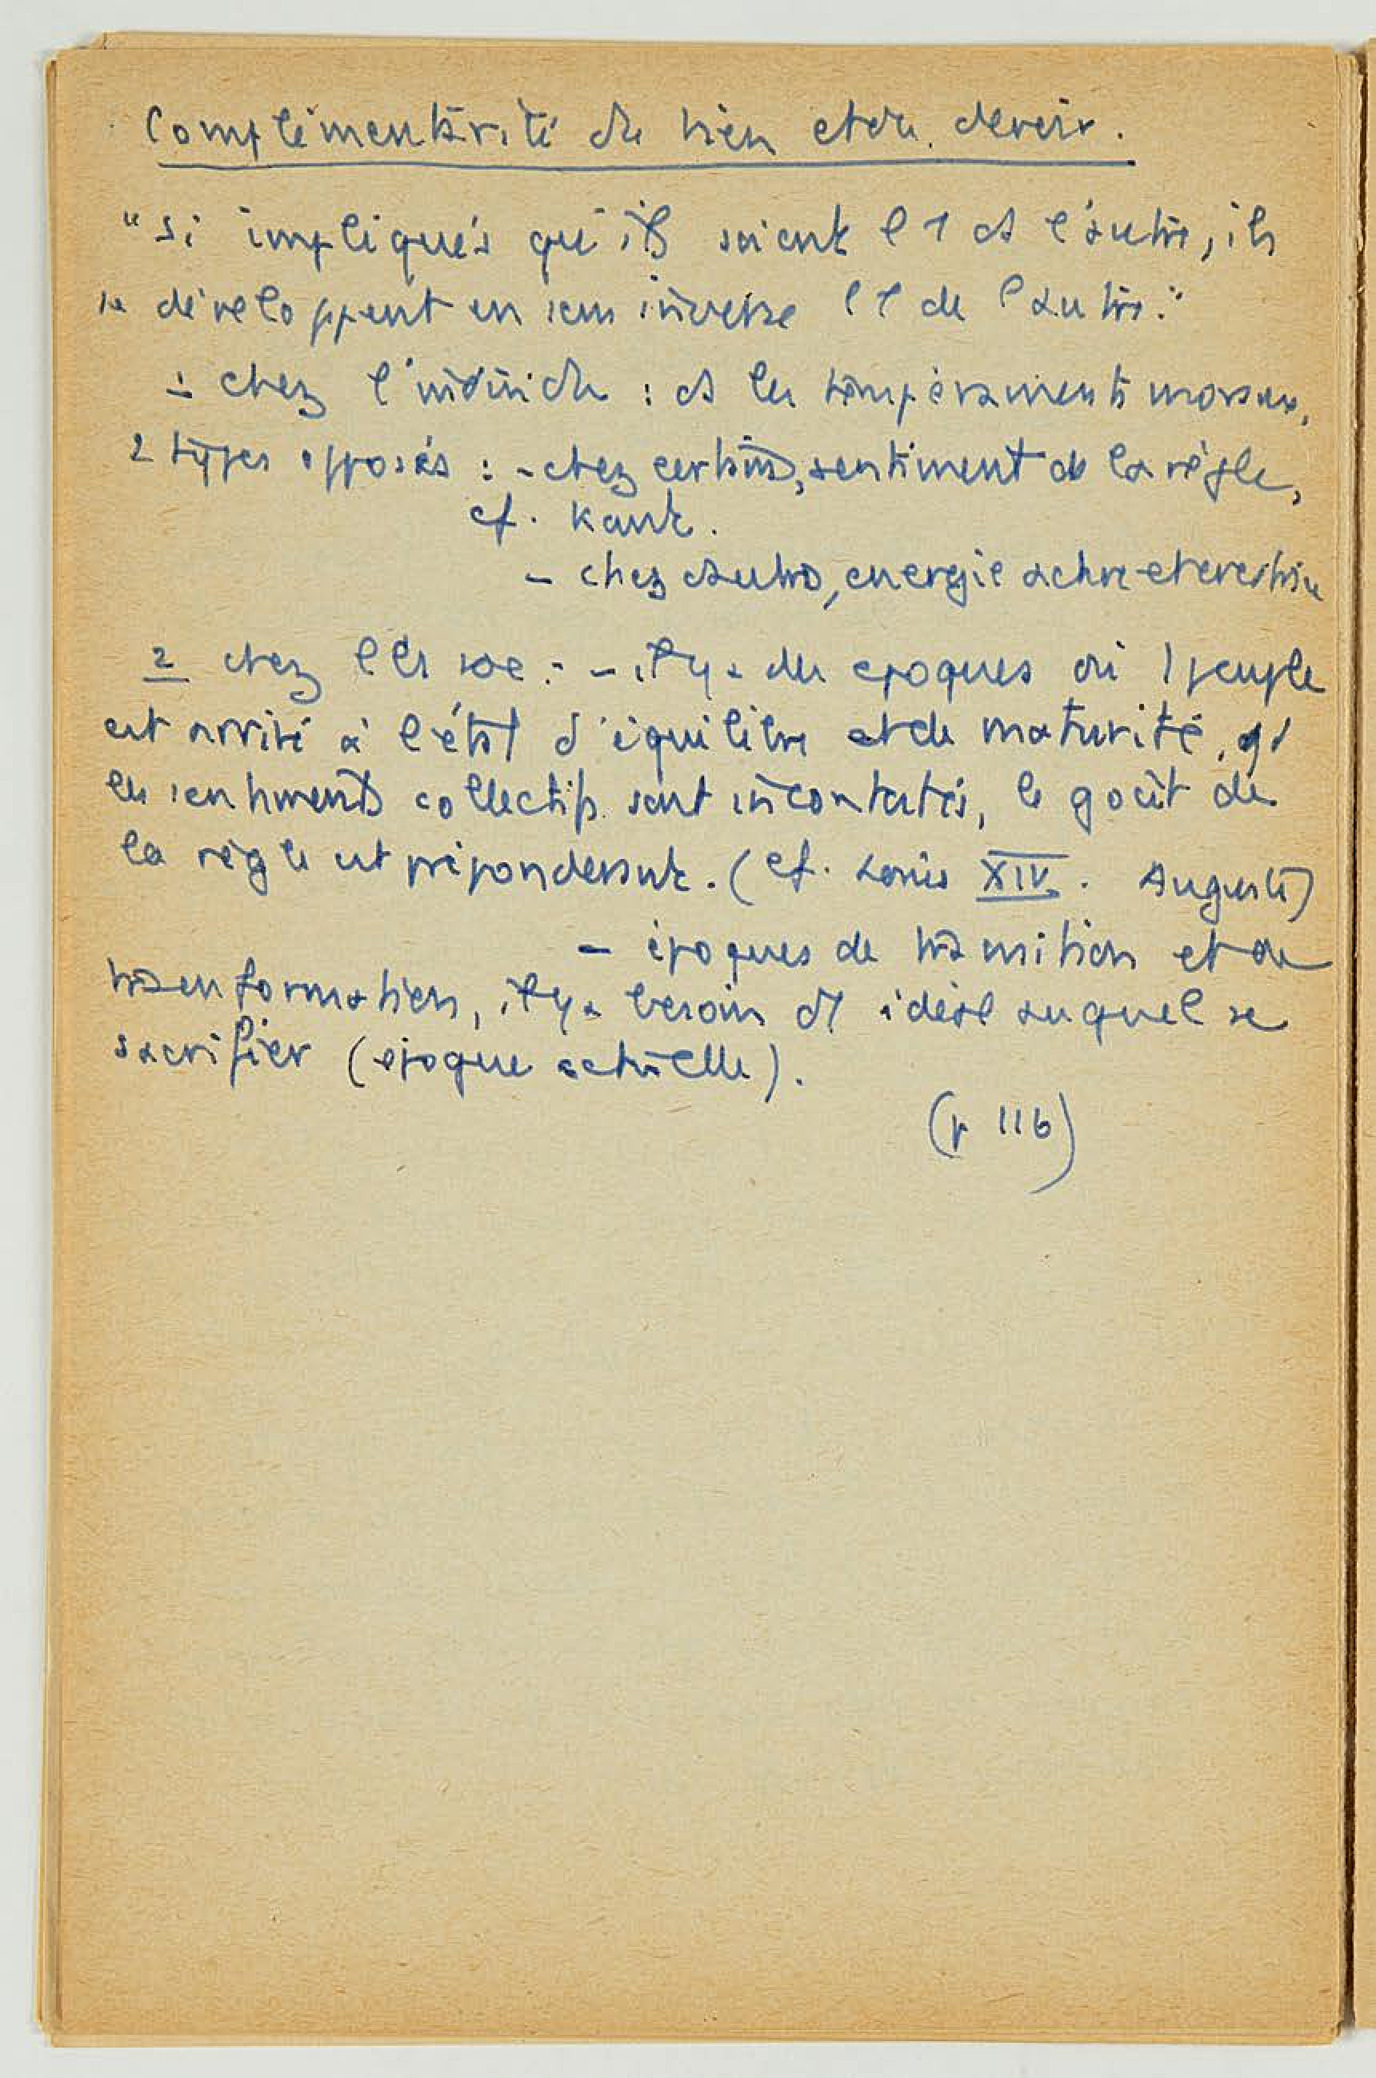 Complémentarité du bien et du devoir.
"Si impliqués qu'ils soient l'1 ds l'autre, ils
se développent en sens inverse l'1 de l'autre."
1 chez l'individu : ds les tempéraments moraux,
2 types opposés : - chez certains, sentiment de la règle,
cf. Kant.
- chez d'autres, energie active et créatrice
2 chez les soc : - il y a des epoques où 1 peuple
est arrivé à l'état d'équilibre et de maturité, qd
les sentiments collectifs sont incontestés, le goût de
la règle est prépondérant. (cf. Louis XIV. Auguste)
- époques de transition et de
transformation, il y a besoin d'1 idéal auquel se
sacrifier (epoque actuelle).
(p 116)